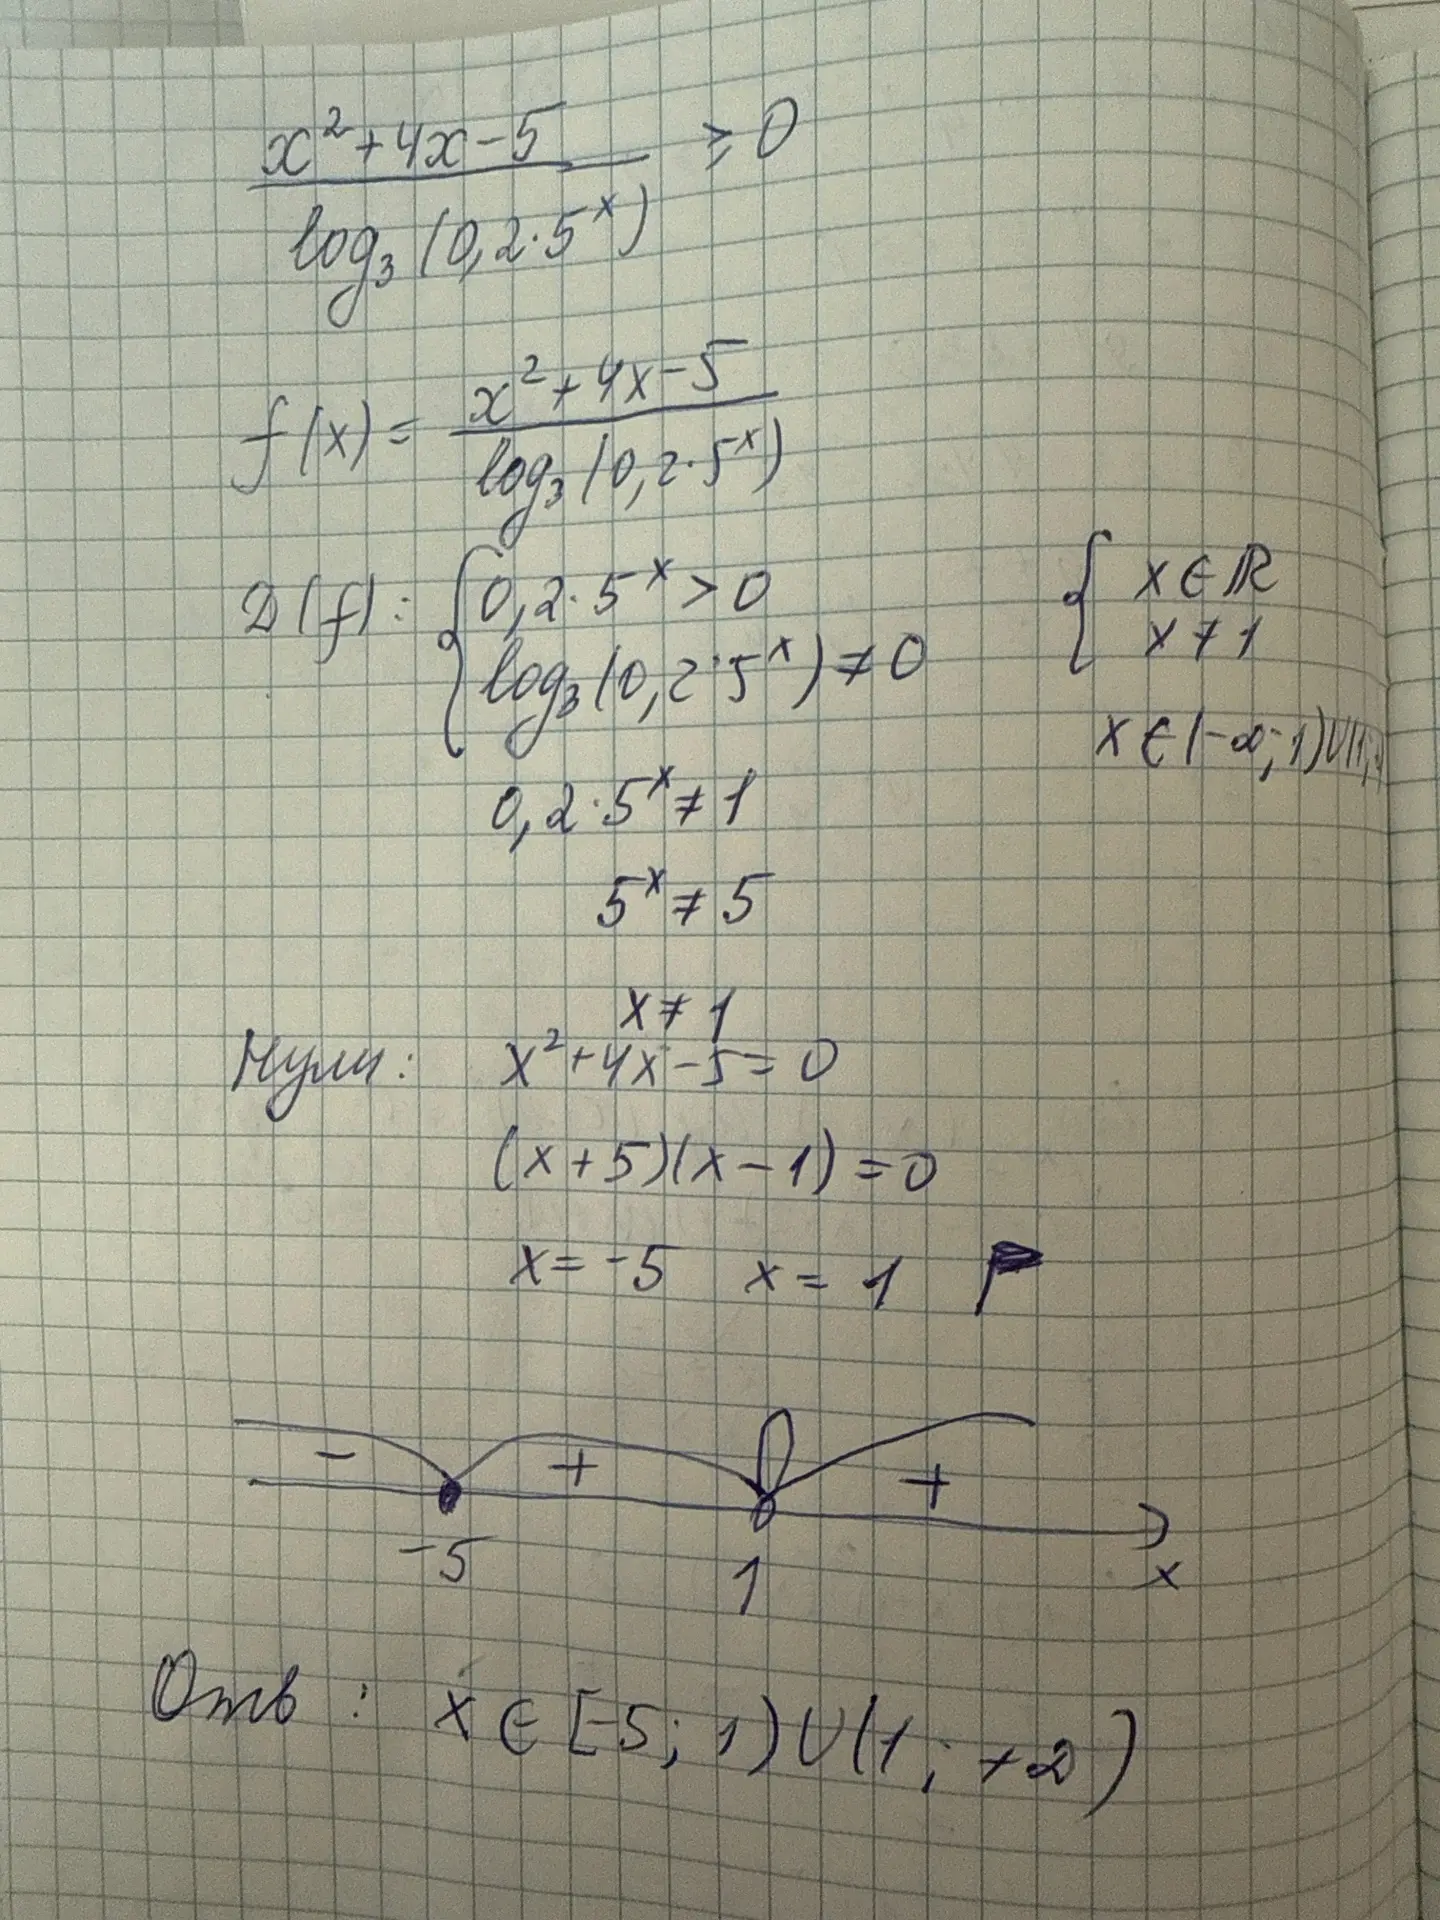 x² + 4x - 5
≥ 0
log₃ (0,2 · 5ˣ)
f(x) =
x² + 4x - 5
log₃ (0,2 · 5ˣ)
D(f): { 0,2 · 5ˣ > 0
log₃ (0,2 · 5ˣ) ≠ 0
{ x ∈ ℝ
x ≠ 1
x ∈ (-∞; 1) ∪ (1;
0,2 · 5ˣ ≠ 1
5ˣ ≠ 5
x ≠ 1
Нули: x² + 4x - 5 = 0
(x + 5)(x - 1) = 0
x = -5 x = 1
- + +
-5 1 x
Отв : x ∈ [-5; 1) ∪ (1; +∞)